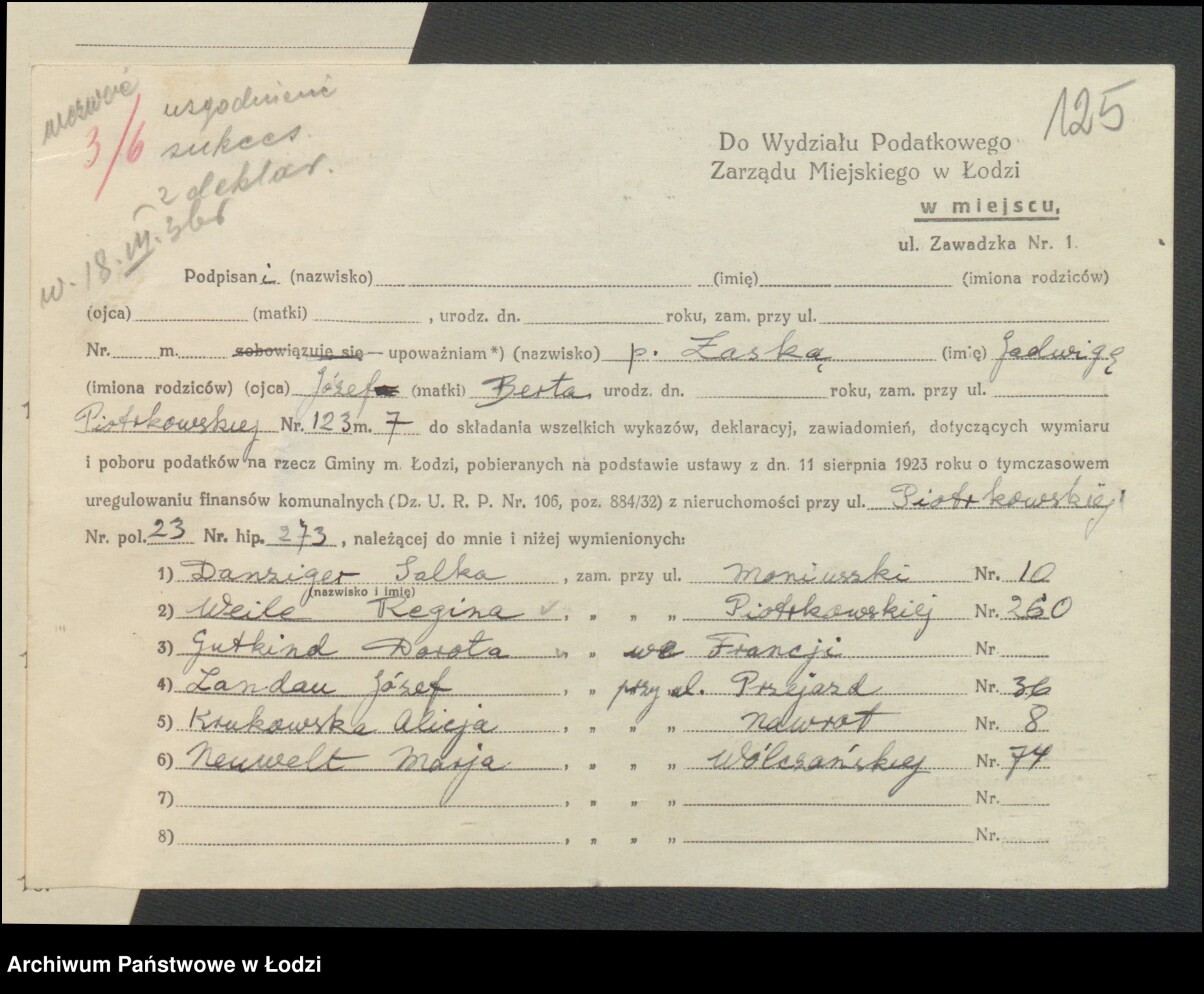 wezwać
3/6 uzgodnienie
sukces.
z deklar.
w. 18. VI. 36r
125
Do Wydziału Podatkowego
Zarządu Miejskiego w Łodzi
w miejscu,
ul. Zawadzka Nr. 1.
Podpisani (nazwisko) (imię) (imiona rodziców)
(ojca) (matki) , urodz. dn. roku, zam. przy ul.
Nr. m. zobowiązuję się — upoważniam *) (nazwisko) p. Łaską (imię) Jadwigę
(imiona rodziców) (ojca) Józef (matki) Berta urodz. dn. roku, zam. przy ul.
Piotrkowskiej Nr. 123 m. 7 do składania wszelkich wykazów, deklaracyj, zawiadomień, dotyczących wymiaru
i poboru podatków na rzecz Gminy m. Łodzi, pobieranych na podstawie ustawy z dn. 11 sierpnia 1923 roku o tymczasowem
uregulowaniu finansów komunalnych (Dz. U. R. P. Nr. 106, poz. 884/32) z nieruchomości przy ul. Piotrkowskiej
Nr. pol. 23 Nr. hip. 273, należącej do mnie i niżej wymienionych:
1) Danziger Salka , zam. przy ul. Moniuszki Nr. 10
(nazwisko i imię)
2) Weile Regina , „ „ „ Piotrkowskiej Nr. 260
3) Gutkind Dorota , „ we Francji Nr
4) Landau Józef , „ przy ul. Przejazd Nr. 36
5) Krukowska Alicja , „ „ „ Nawrot Nr. 8
6) Neuwelt Marja , „ „ „ Wólczańskiej Nr. 74
7) , „ „ „ Nr.
8) , „ „ „ Nr.
Archiwum Państwowe w Łodzi